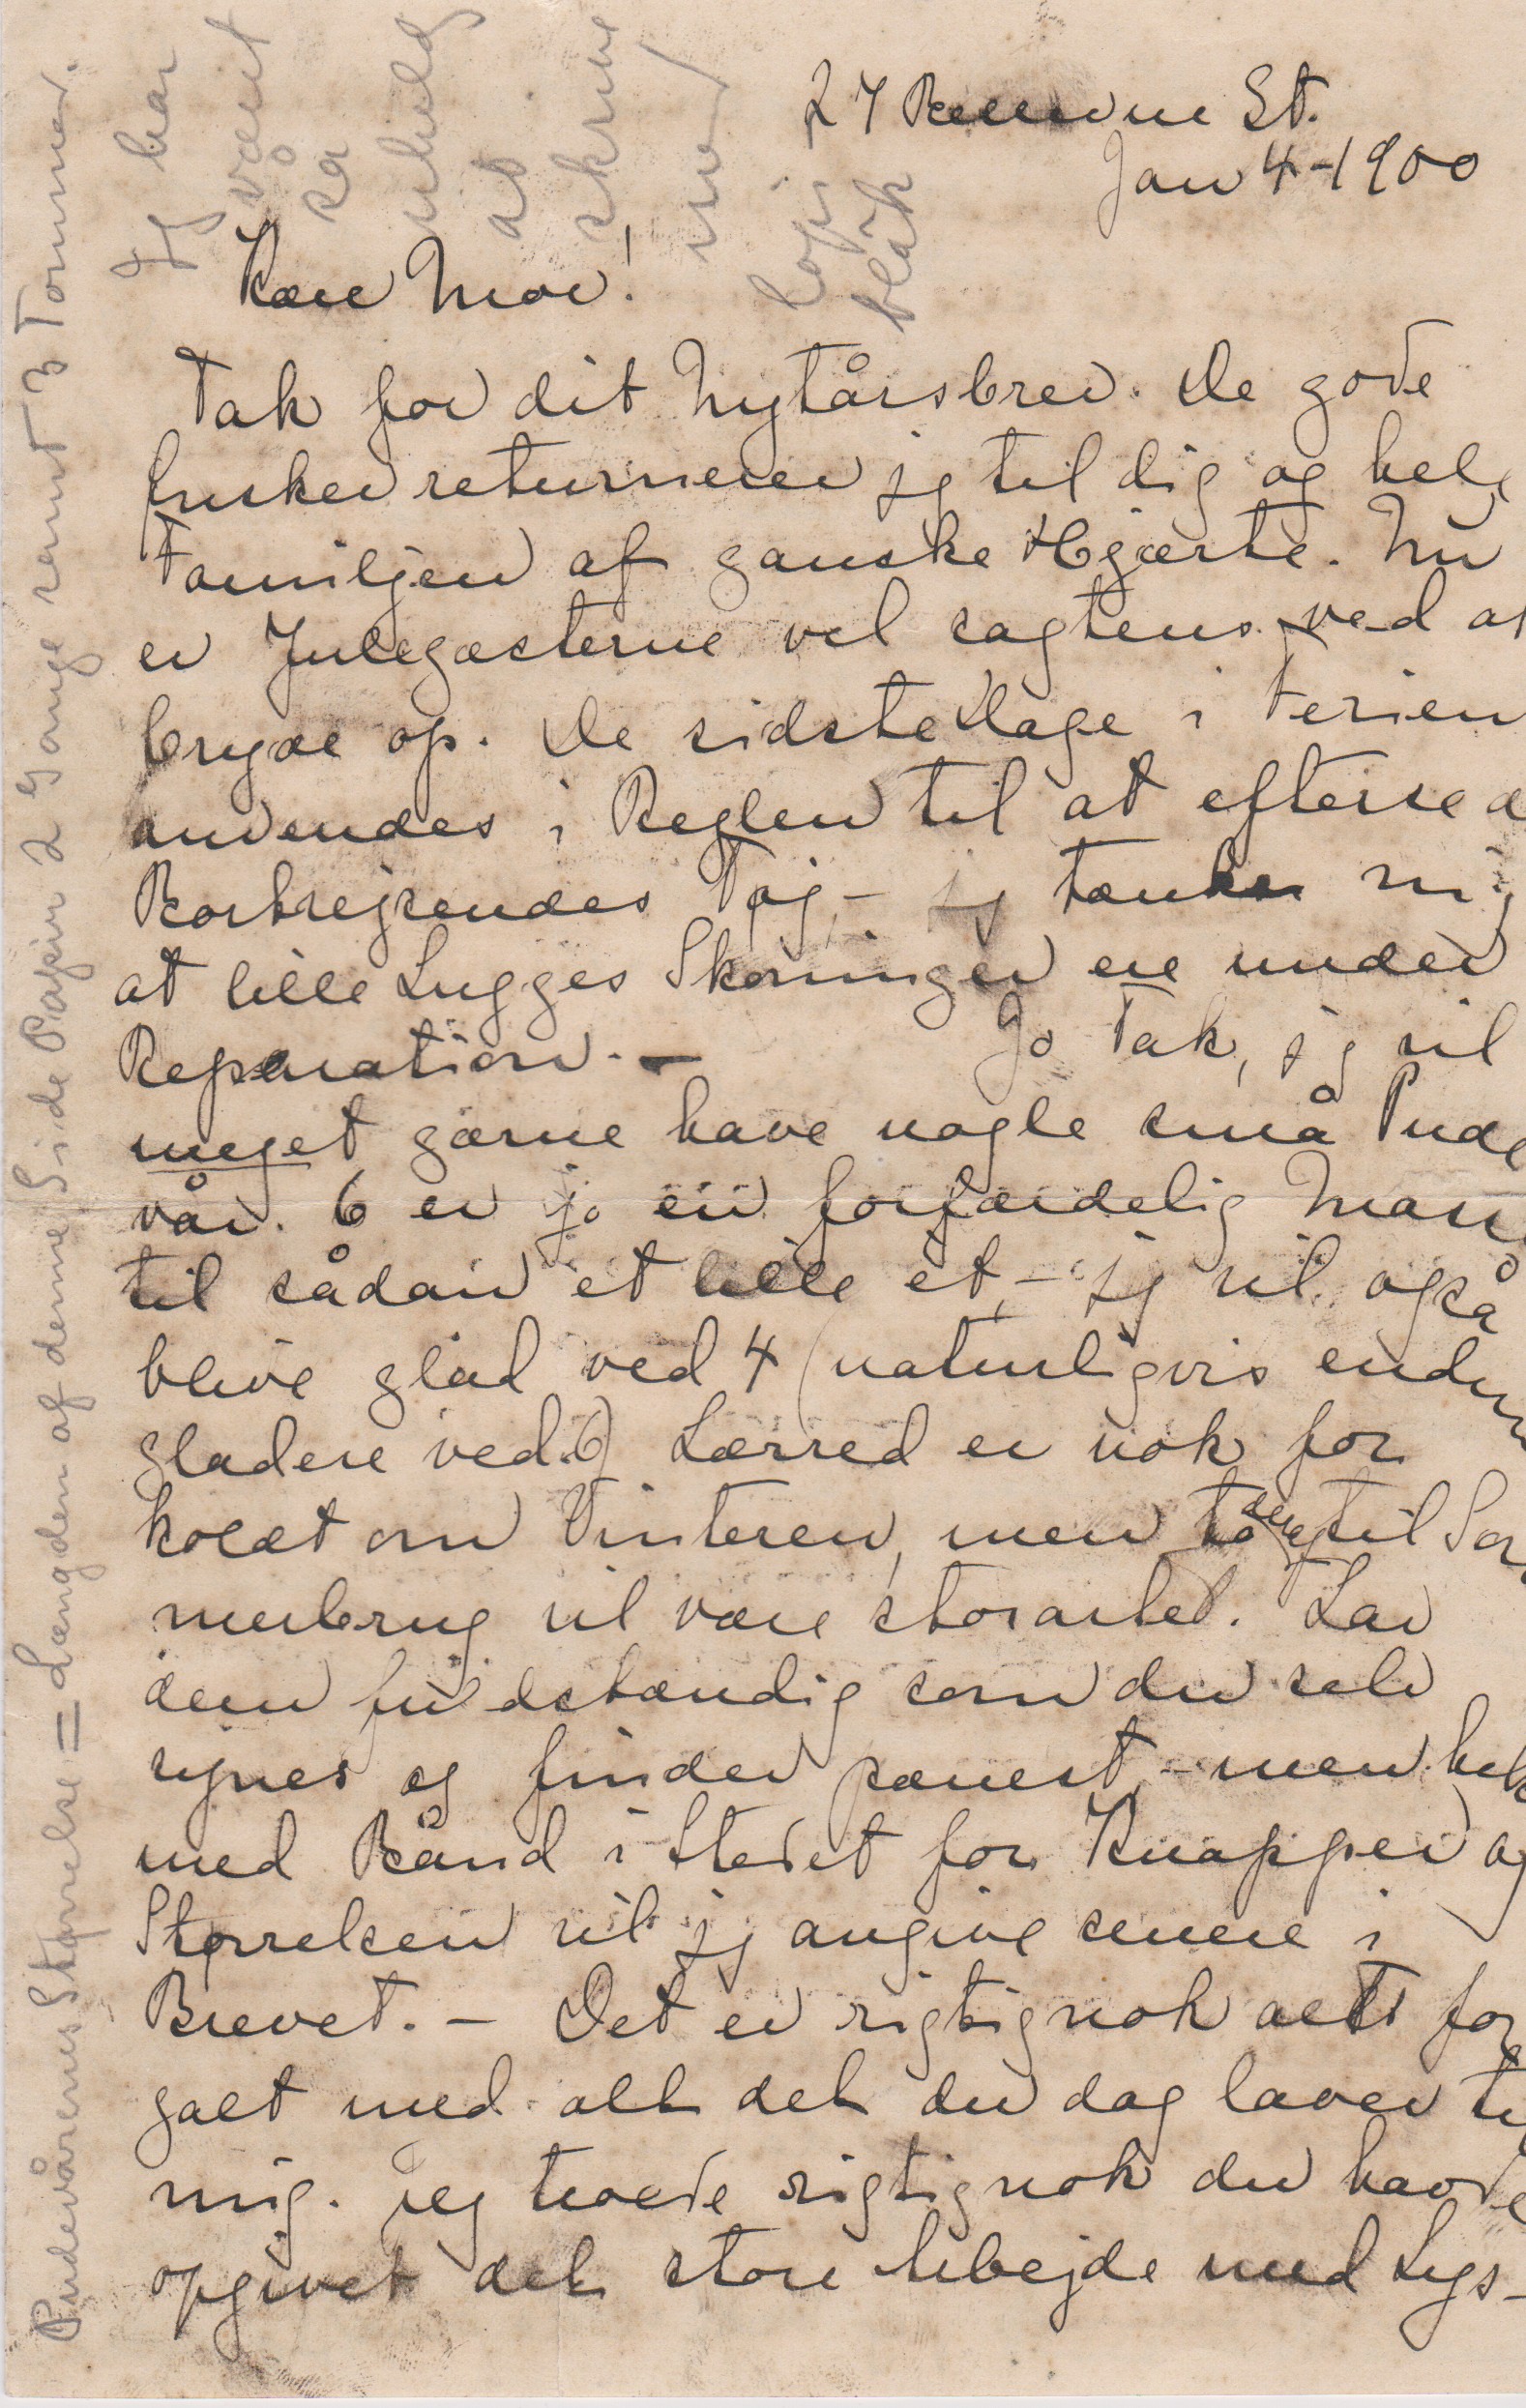 27 St.
Jan 4-1900
Jeg har
været
så
uheld
at
skrive
med
kopi-
blæk
Kære Mor!
Tak for dit Nytårsbrev. De gode
Ønsker returnerer jeg til dig og hele
Familjen af ganske Hjærte. Nu
er Julegæsterne vel sagtens ved at
bryde op. De sidste Dage i Ferien
anvendes i Reglen til at efterse de
Bortrejsendes Tøj, - jeg tænker mig
at lille Lugges Skoninger ere under
Reparation. - Jo Tak, jeg vil
meget gærne have nogle små Pude
vår. 6 er jo en forfærdelig Mang
til sådan et lille et, - jeg vil også
blive glad ved 4 (naturligvis endnu
gladere ved 6) Lærred er nok for
koldt om Vinteren, men den til Som
merbrug vil være storartet. Lav
dem fuldstændig som du selv
synes og finder pænest, - men helst
med Bånd i Stedet for Knapper og
Størrelsen vil jeg angive senere i
Brevet. - Det er rigtignok altt for
galt med alt det du dog laver til
mig. jeg troede rigtignok du havde
opgivet det store Arbejde med Lys-
Pudevårenes Størrelse = Længden af denne Side Papir 2 Gange samt 3 Tommer.